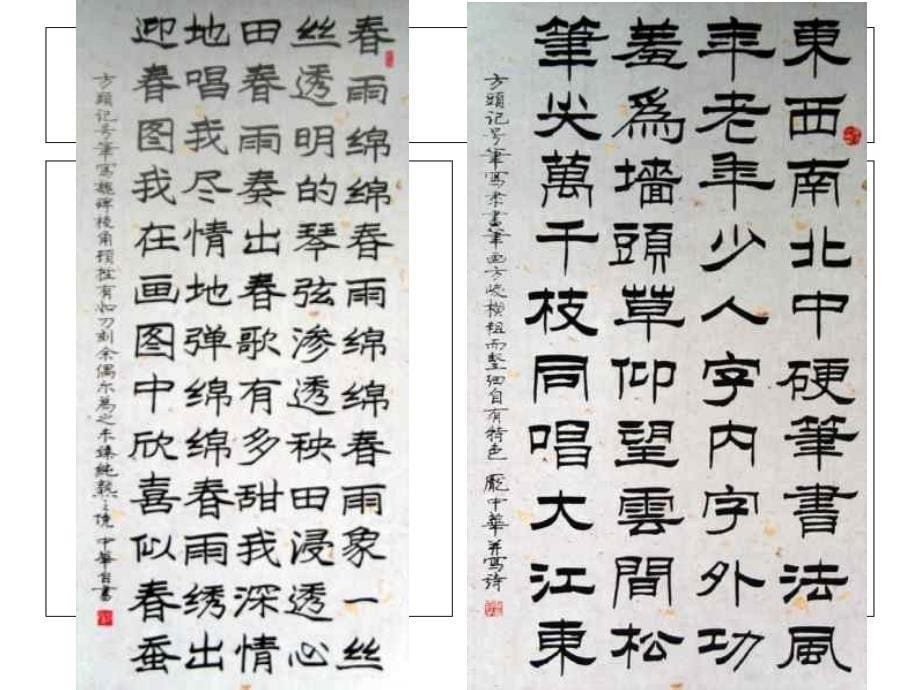 春雨绵绵春雨绵绵春雨象一丝
丝透明的琴弦渗透秧田浸透心
田春雨奏出春歌有多甜我深情
地唱我尽情地弹绵绵春雨绣出
迎春图我在画图中欣喜似春蚕
方頭记号筆寫魏碑棱角頓挫有如刀刻余偶尔為之未臻純熟之境 中華自書
東西南北中硬筆書法風
年老年少人字内字外功
羞爲墙頭草仰望雲間松
筆尖萬千枝同唱大江東
方頭记号筆寫隶書筆画方峻横粗而竪细自有特色 龐中華并寫诗